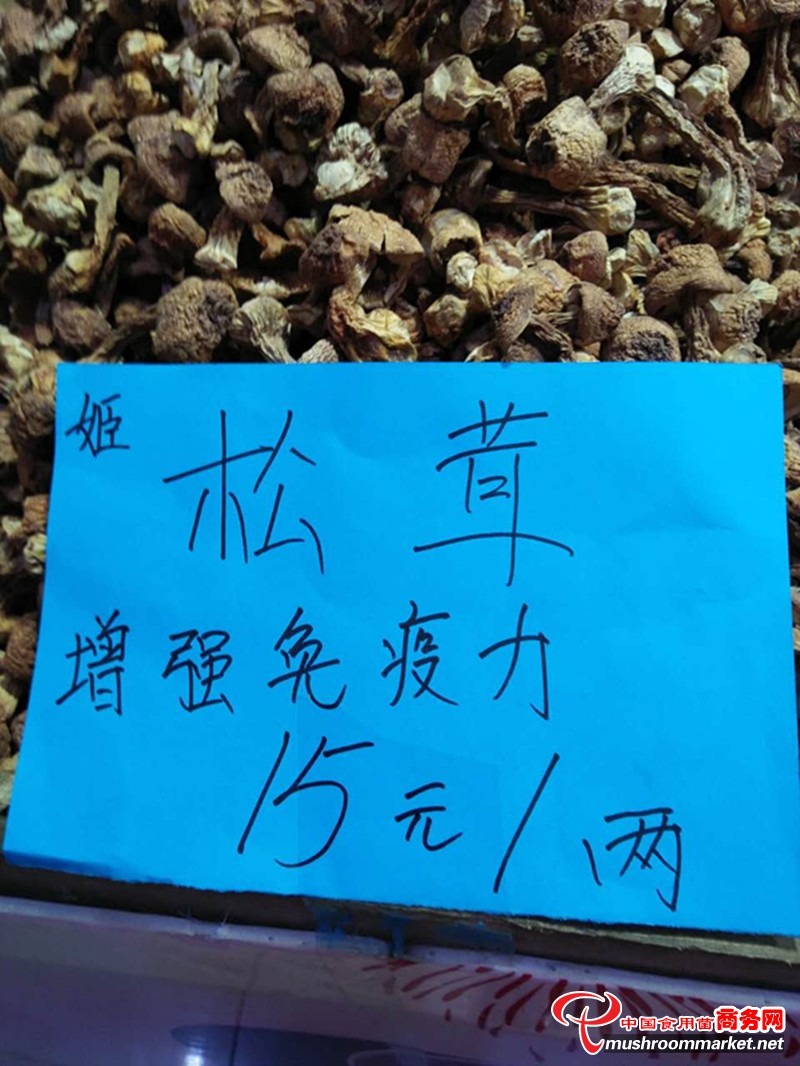 姬松茸
增强免疫力
15元/两
中国食用菌商务网
mushroommarket.net